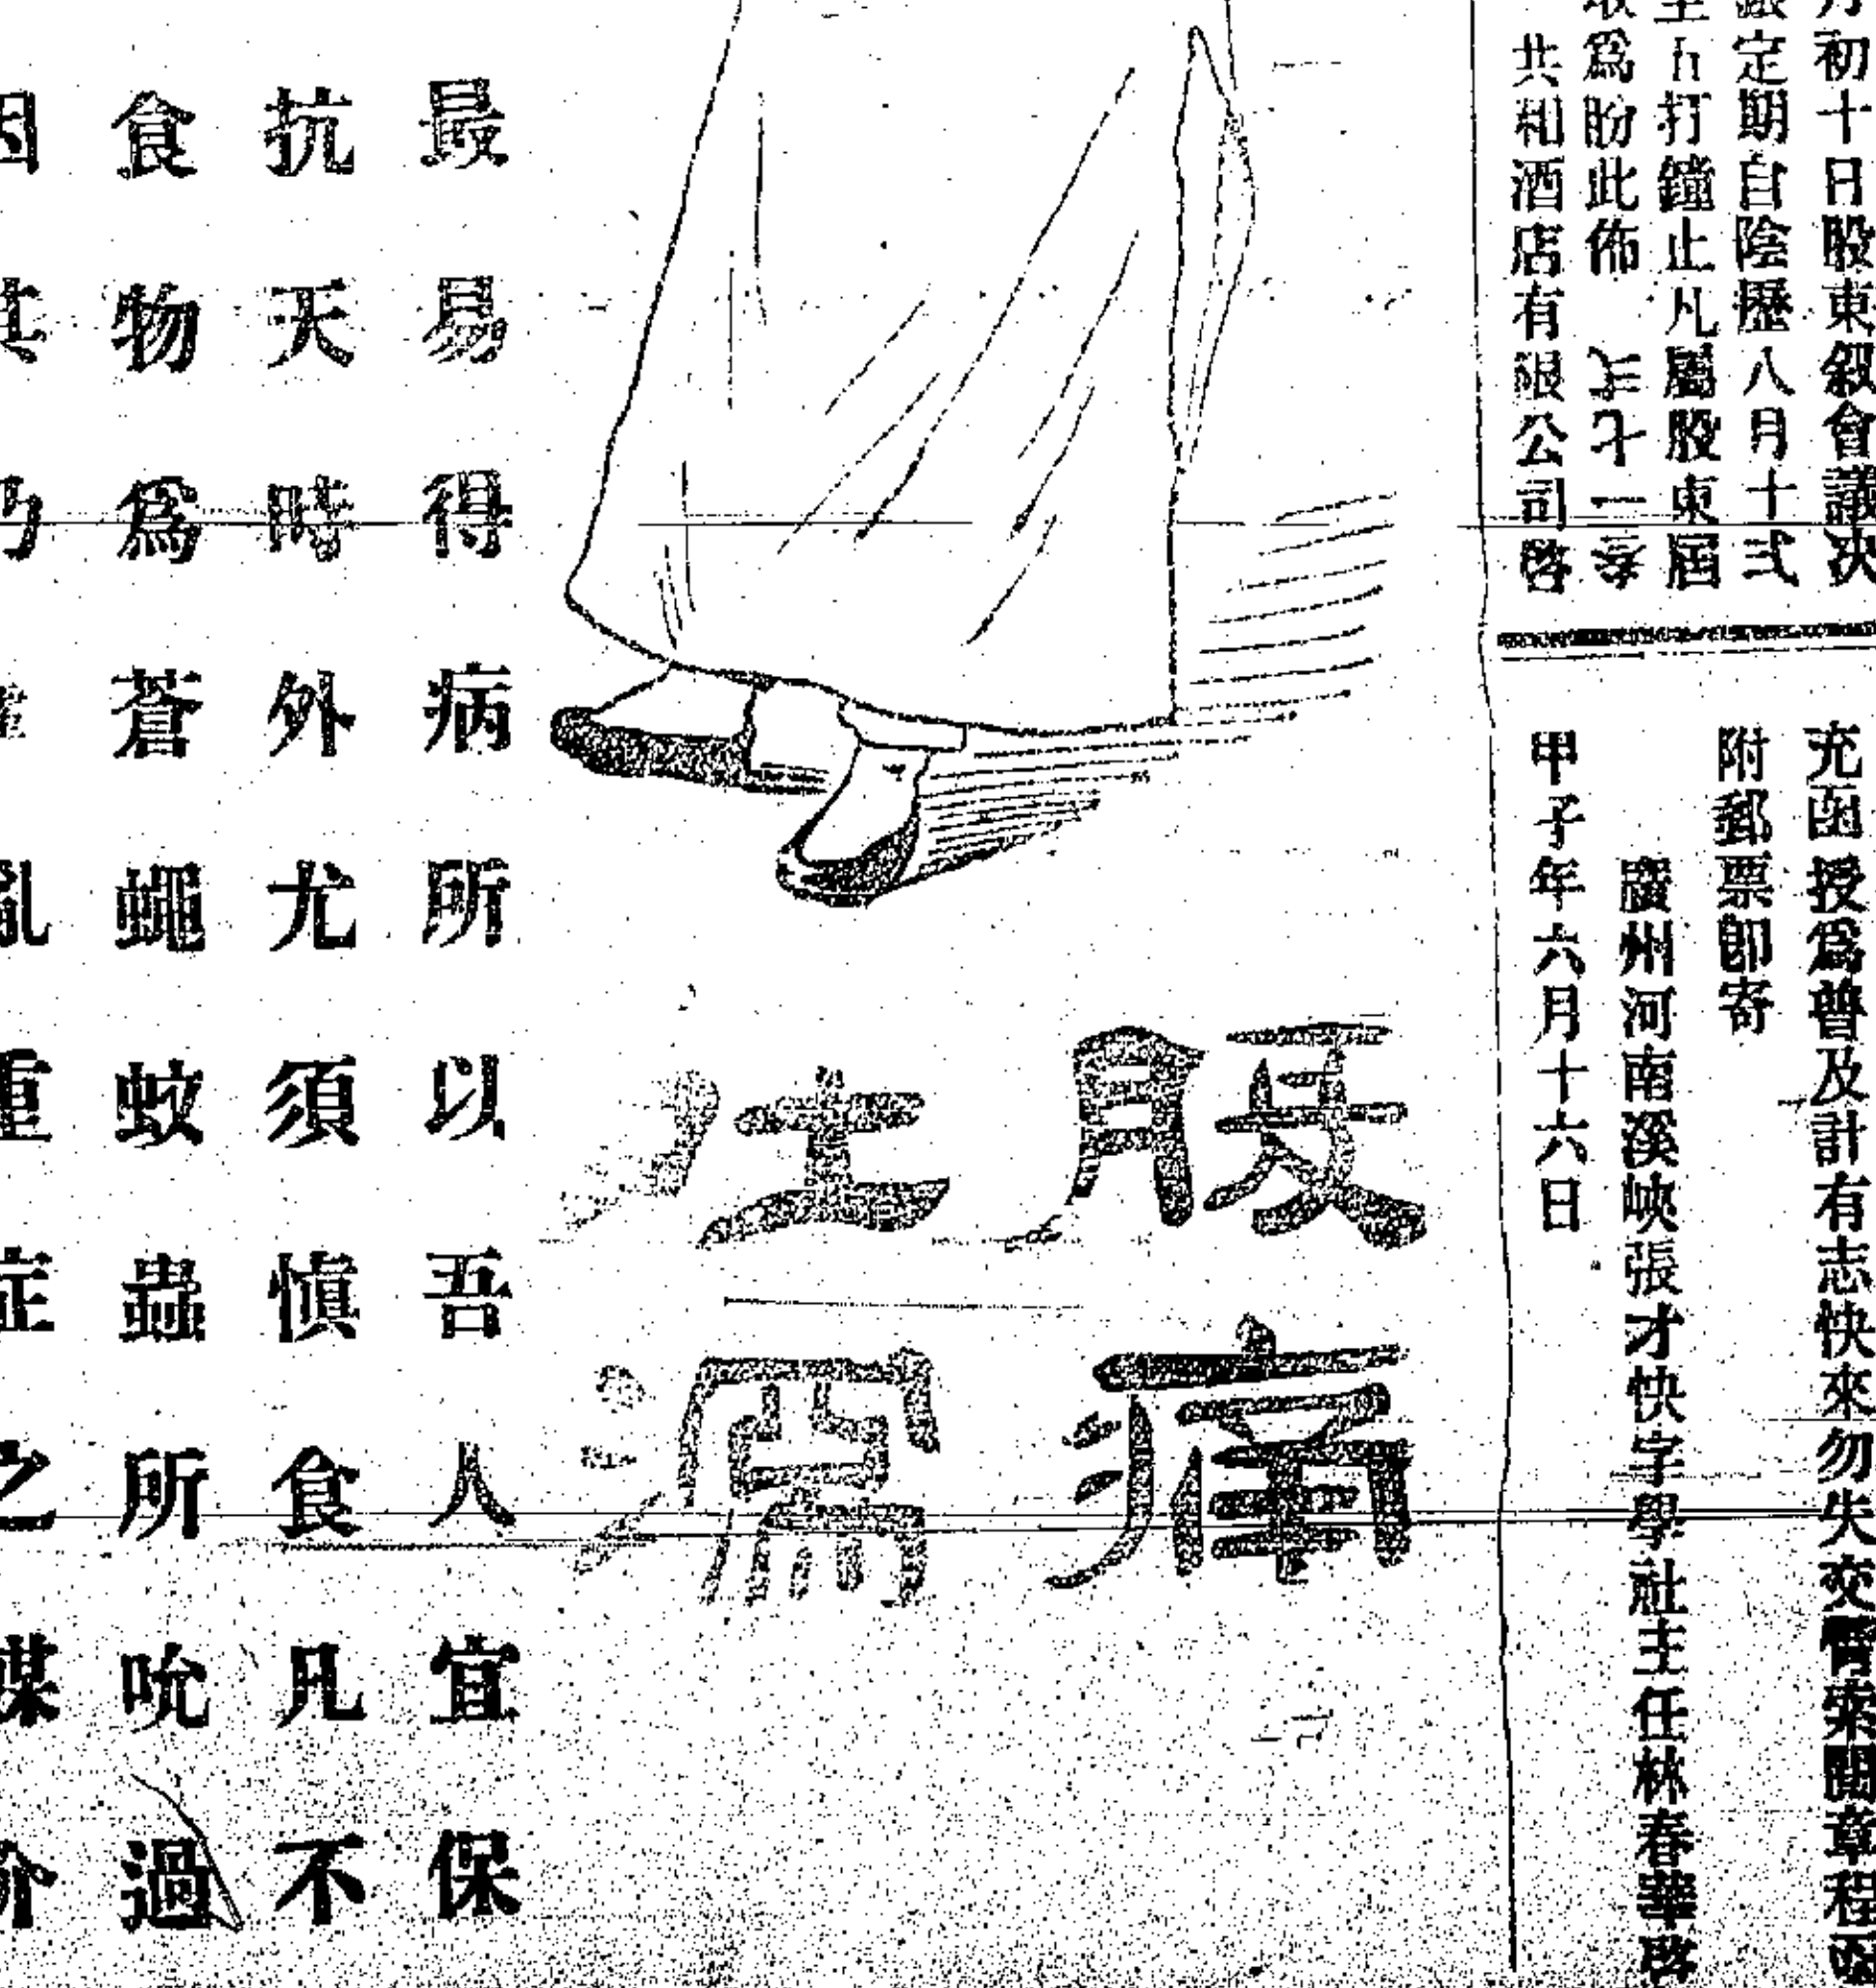 初十日股東叙會議决
定期自陰歷八月十弍
至五打鐘止凡屬股東屆
爲盼此佈
共和酒店有限公司啓
充函授爲普及計有志快來勿失交費索閱章程函
附郵票卽寄
廣州河南溪峽張才快字學社主任林春華啓
甲子年六月十六日
腹痛
瀉
最易得病所以吾人宜保
抗天時外尤須愼食凡不
食物爲蒼蠅蚊蟲所吮過
因其乃 亂重症之媒介